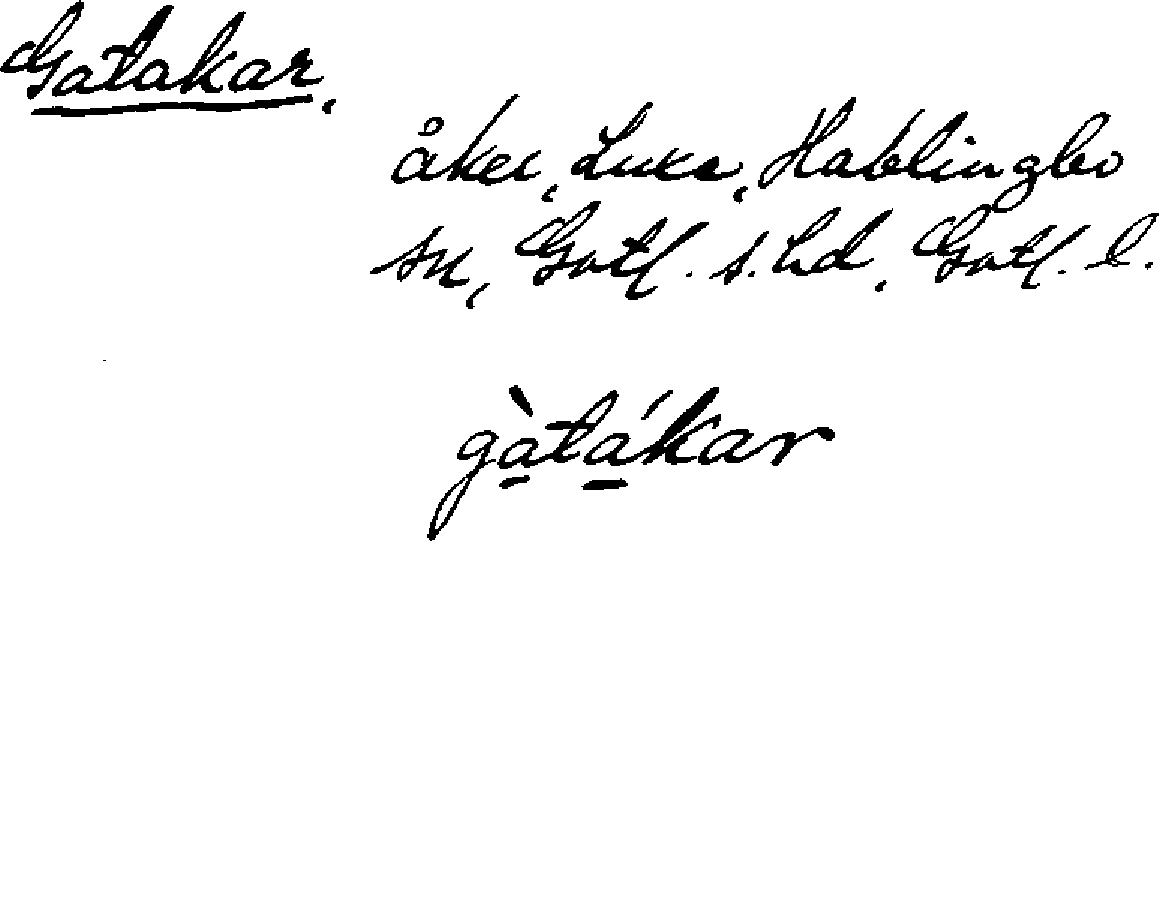 Gatakar,
åker, Lukse, Hablingbo
sn, Gotl. s. hd, Gotl. l.
gàtákar